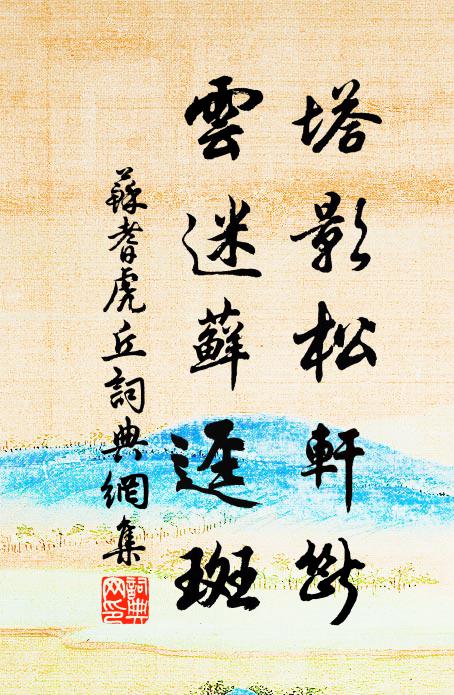 塔影松軒斷
雲迷蘚逕斑
蘇耆虎丘詞典網集
詞典網印